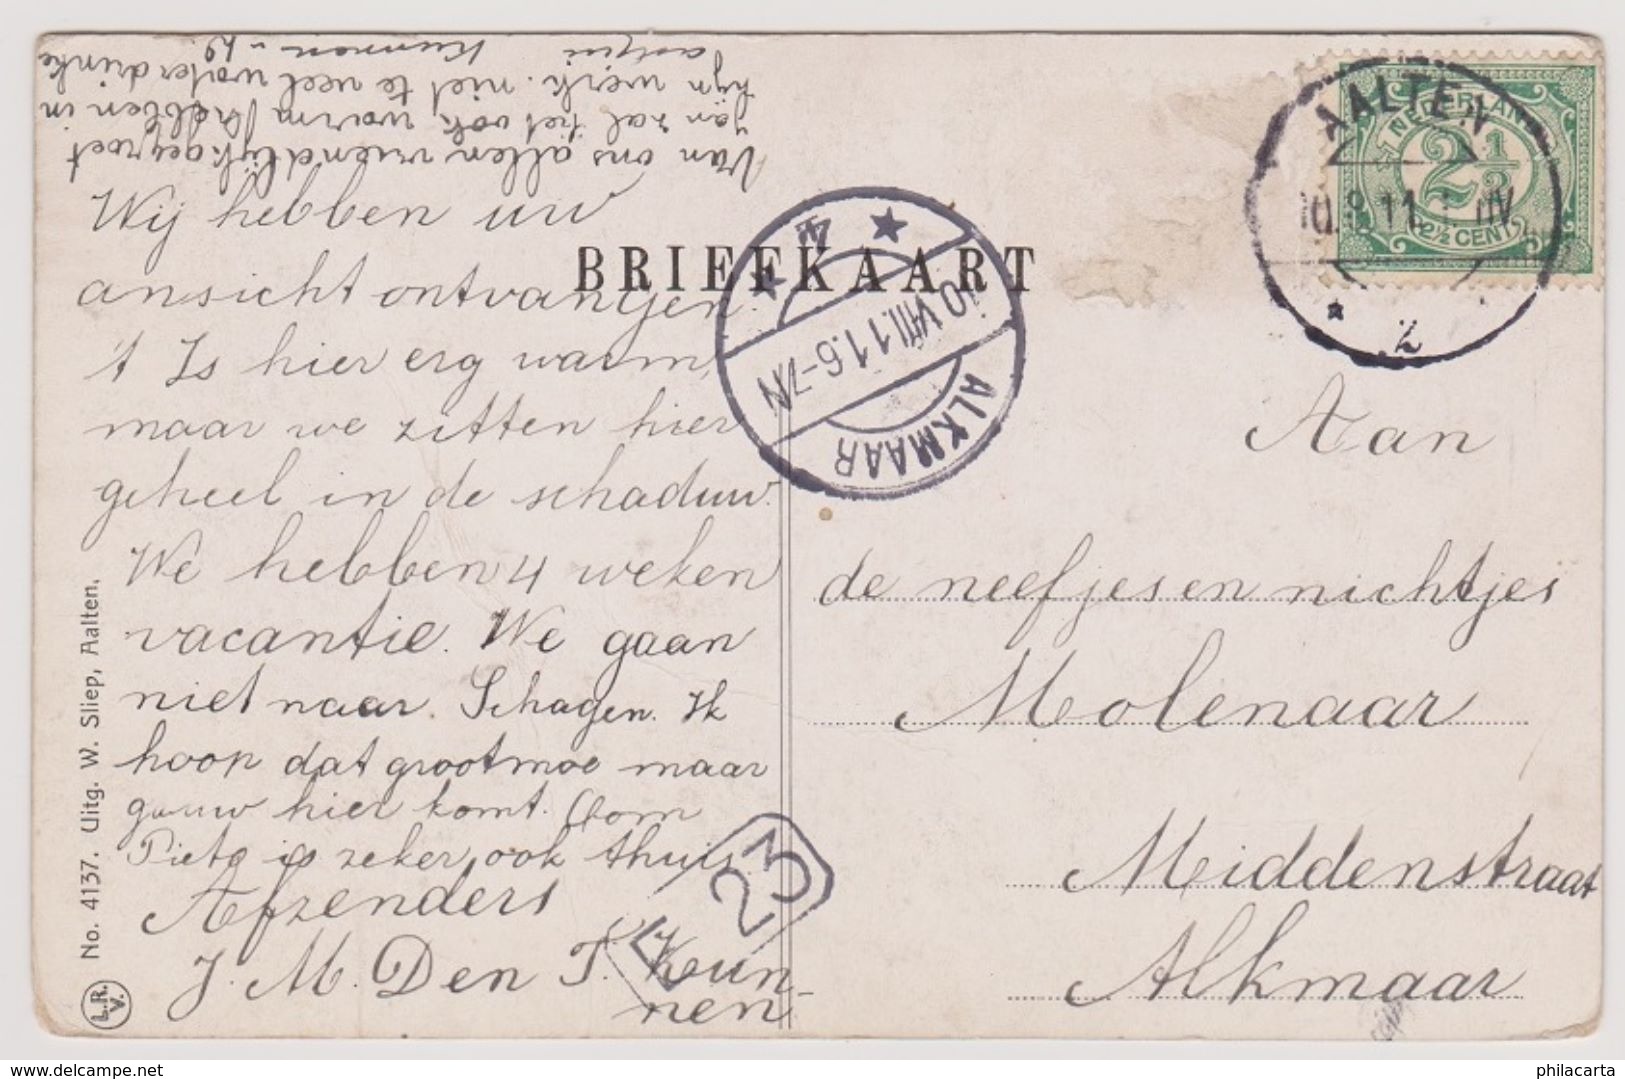 Wij hebben uw
ansicht ontvangen
't Is hier erg warm,
maar we zitten hier
geheel in de schaduw.
We hebben 4 weken
vacantie. We gaan
niet naar Schagen. Ik
hoop dat grootmoe maar
gauw hier komt. Oom
Piet is zeker ook thuis.
Afzenders
J. M. Den T. Kun-
nen
Van ons allen vriendlijk gegroet
Jan zal het ook warm hebben in
zijn werk. niet te veel waterdrinke
Kunnen
BRIEFKAART
AALTEN
10.8.11
2
NEDERLAND
2½
2½ CENT
ALKMAAR
10 VIII.11.6-7N
4
Aan
de neefjes en nichtjes
Molenaar
Middenstraat
Alkmaar
No. 4137. Uitg. W. Sliep, Aalten.
L.R.
V.
philacarta
www.delcampe.net